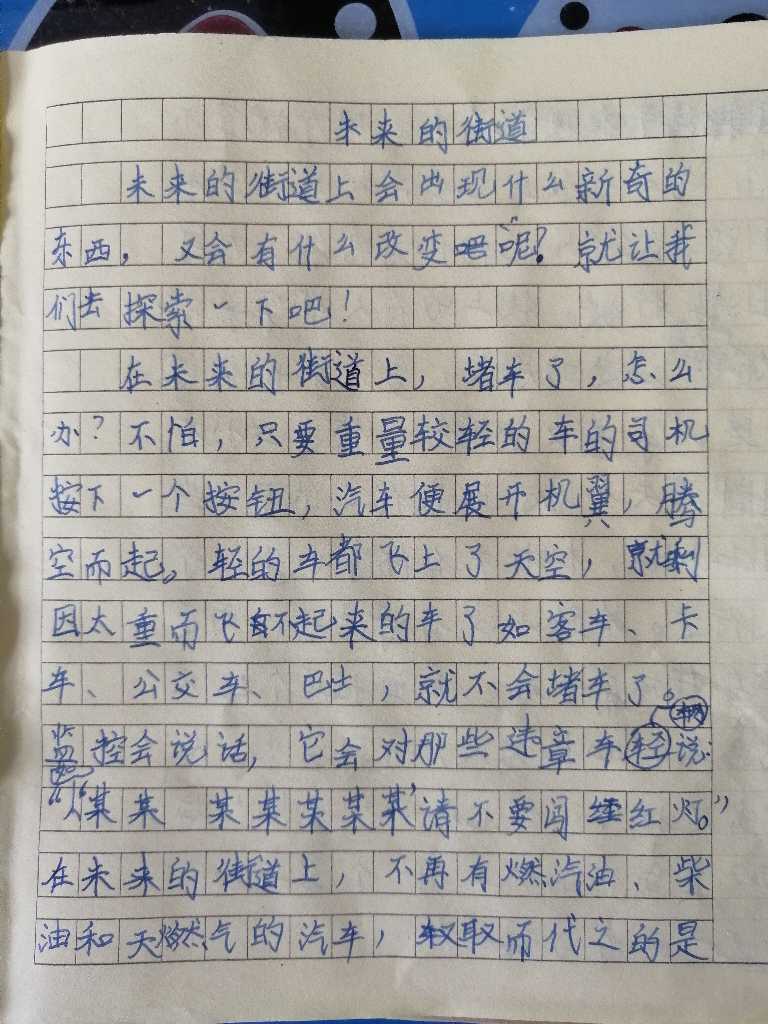 未来的街道
未来的街道上会出现什么新奇的
东西，又会有什么改变呢？就让我
们去探索一下吧！
在未来的街道上，堵车了，怎么
办？不怕，只要重量较轻的车的司机
按下一个按钮，汽车便展开机翼，腾
空而起。轻的车都飞上了天空，就剩
因太重而飞不起来的车了如客车、卡
车、公交车、巴士，就不会堵车了。
监控会说话，它会对那些违章车辆说：
“‘某某 某某某某某’请不要闯红灯。”
在未来的街道上，不再有燃汽油、柴
油和天燃气的汽车，取而代之的是